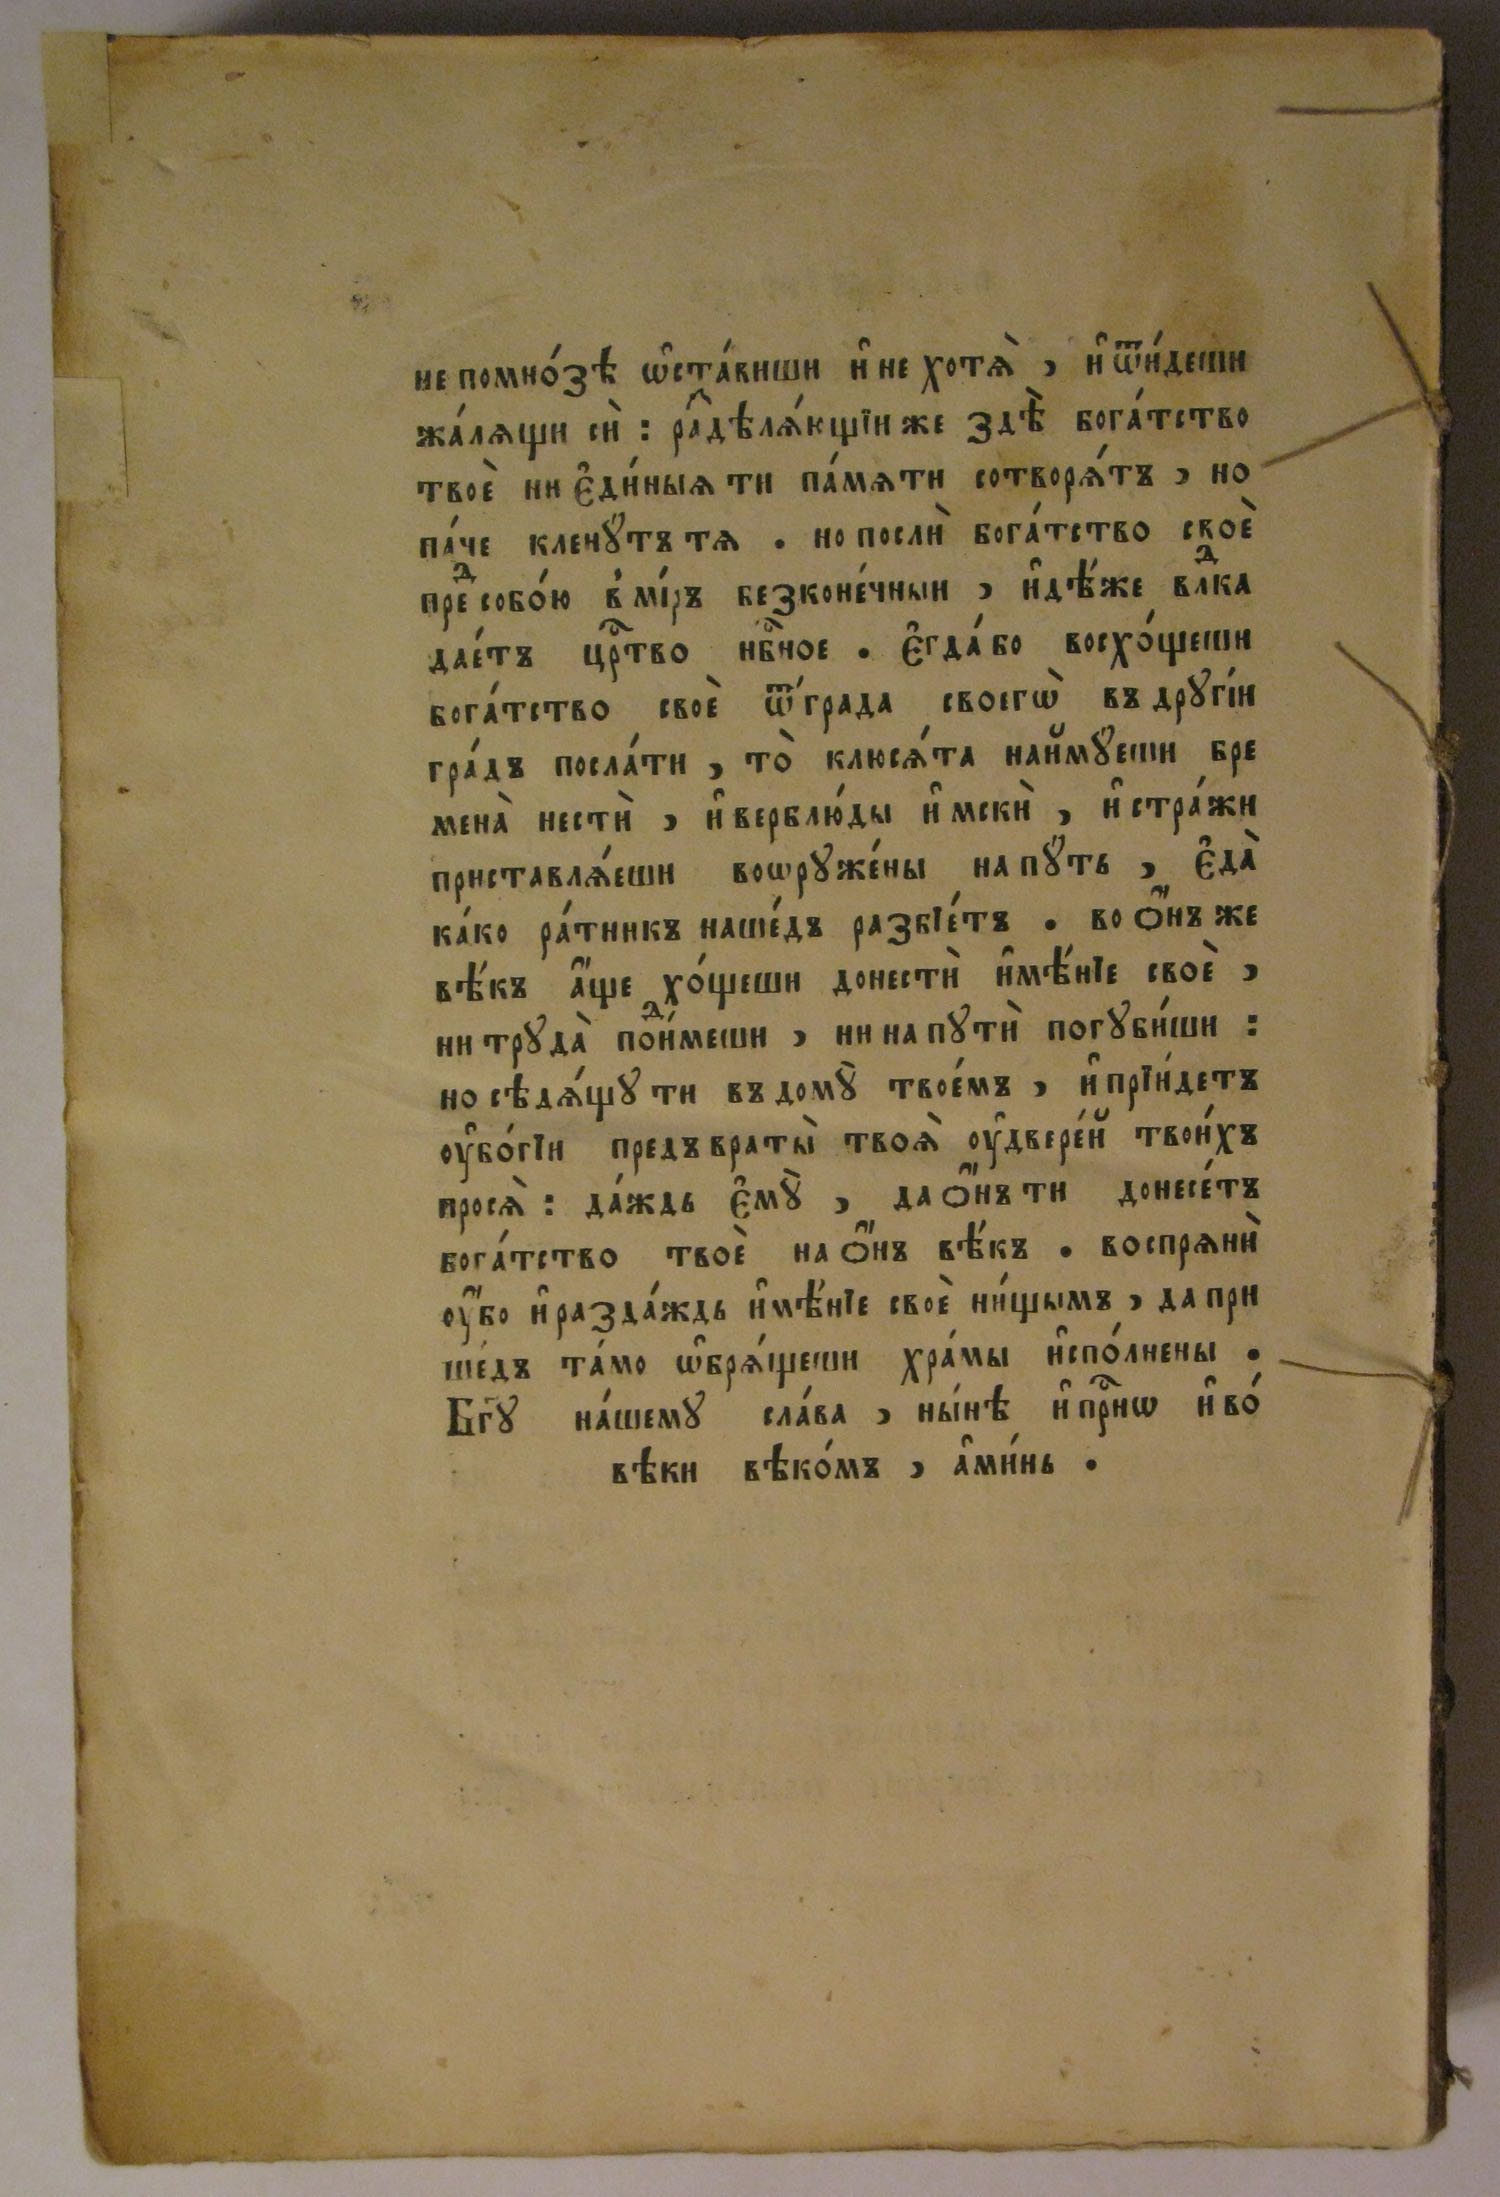 не помно́зѣ ѡ҆ста́виши и҆ не хотѧ̀ , и҆ ѿи́деши
жа́лѧщи сѝ : ра́здѣлѧ́ющїи же здѣ̀ бога́тство
твоѐ ни є҆ди́ныѧ ти па́мѧти сотворѧ́тъ , но
па́че кленꙋ́тъ тѧ . но послѝ бога́тство своѐ
преⷣ собо́ю в̾ мі́ръ безконе́чныи , и҆дѣ́же влⷣка
дае́тъ црⷭ҇тво нбⷭ҇ное . є҆гда́ бо восхо́щеши
бога́тство своѐ ѿ гра́да своегѡ̀ въ дрꙋгі́и
гра́дъ посла́ти , то̀ клюсѧ́та най́мꙋеши бре
мена̀ нестѝ , и҆ верблю́ды и҆ мскѝ , и҆ стра́жи
приставлѧ́еши воѡрꙋже́ны на пꙋ́ть , є҆да̀
ка́ко ра́тникъ наше́дъ разбїе́тъ . во ѻ҆́нъ же
вѣ́къ а҆́ще хо́щеши донестѝ и҆мѣ́нїе своѐ ,
ни трꙋда̀ поⷣи́меши , ни на пꙋтѝ погꙋби́ши :
но сѣдѧ́щꙋ ти въ домꙋ̀ твое́мъ , и҆ прїи́детъ
ᲂу҆бо́гїи предъ враты̀ твоѧ̀ ᲂу҆ двере́й твои́хъ
просѧ̀ : да́ждь є҆мꙋ̀ , да ѻ҆́нъ ти донесе́тъ
бога́тство твоѐ на ѻ҆́нъ вѣ́къ . воспрѧнѝ
ᲂу҆́бо и҆ разда́ждь и҆мѣ́нїе своѐ ни́щымъ , да при
ше́дъ та́мо ѡ҆брѧ́щеши хра́мы и҆спо́лнены .
Бг҃ꙋ на́шемꙋ сла́ва , ны́нѣ и҆ прⷭ҇нѡ и҆ во́
вѣки вѣко́мъ , а҆ми́нь .